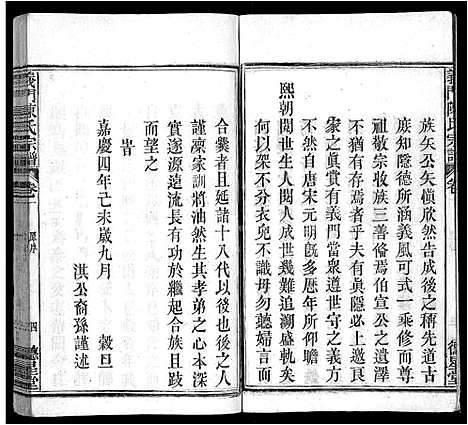 義門陳氏宗譜
卷
德星堂
族矢公矢愼欣然告成後之稱先道古
族知隱德所涵義風可式一乘修而大
宗收族三善偹焉伯宣公之遺澤
不猶有存者乎夫有眞隱必起
家之眞孝有義門當衆遺世守之義方
不然自唐宋元明歷年所仰瞻
熙朝閱世生人閱人成世幾難追溯盛軌奚
啻不分衣兒不識母勿聽婦言
合爨者且延諸十八代以後也後之人
謹凜家訓將油然生其孝弟之心本深
實遂源遠流長有功於繼起合族且跂
而望之
旹
嘉慶四年己未歲九月　穀旦
淇公裔孫謹述
義門陳氏宗譜
卷
原序
四
德星堂